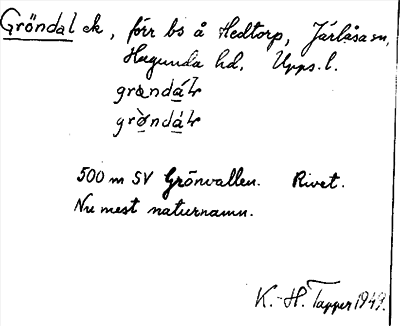 Gröndal ck, förr bs å Hedtorp, Järlåsa sn,
Hagunda hd. Upps. l.
500 m SV Grönvallen. Rivet.
Nu mest naturnamn.
K.-H. Tapper 1949.